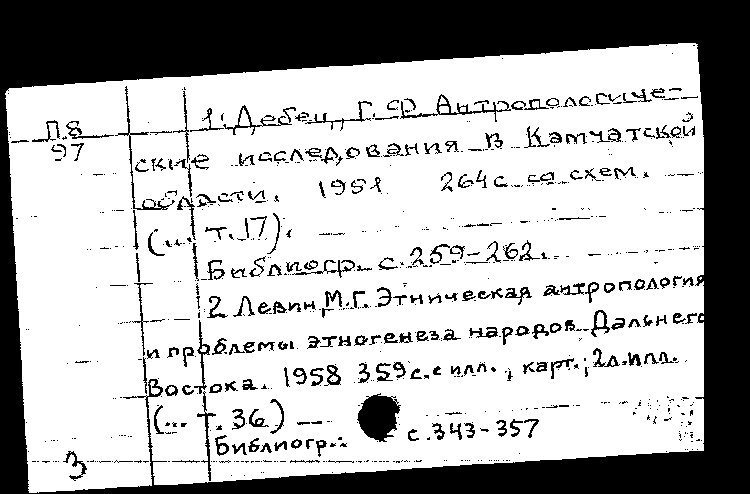 П.8
97
1. Дебец, Г.Ф. Антропологиче-
ские исследования в Камчатской
области. 1951 264с со схем.
(... т.17).
Библиогр. с.259-262.
2 Левин, М.Г. Этническая антропология
и проблемы этногенеза народов Дальнего
Востока. 1958 359с.с илл., карт.; 2л.илл.
(... т. 36) —
Библиогр.: с.343-357
3